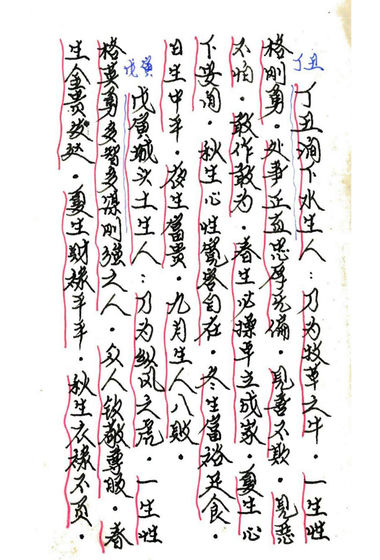 丁丑
丁丑润下水生人：乃为牧草之牛．一生性
格刚勇．处事正直忠厚无偏．见善不欺．见恶
不怕．敢作敢为．春生必操草立成家．夏生心
下安闲．秋生心性鸳鸯自在．冬生富裕丑食．
日生中平．夜生富贵．九月生人八败．
戊寅
戊寅城头土生人：乃为纵风之虎．一生性
格英勇多智多谋刚强之人．众人钦敬尊贩．春
生金贵发达．夏生财禄平平．秋生衣禄不贡．